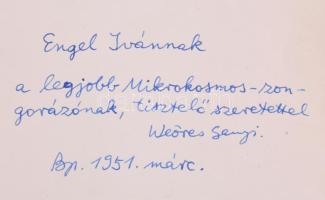 Engel Ivánnak
a legjobb Mikrokosmos-zon-
gorázónak, tisztelő szeretettel
Weöres Sanyi.
Bp. 1951. márc.